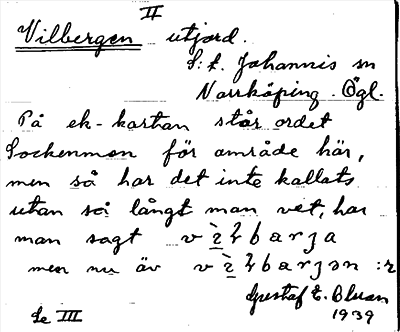 II
Vilbergen utjord.
S:t. Johannis sn
Norrköping. Ögl.
På ek-kartan står ordet
Sockenmon för område här,
men så har det inte kallats
utan så långt man vet, har
man sagt
men nu äv
Gustaf E.
1939
Se III